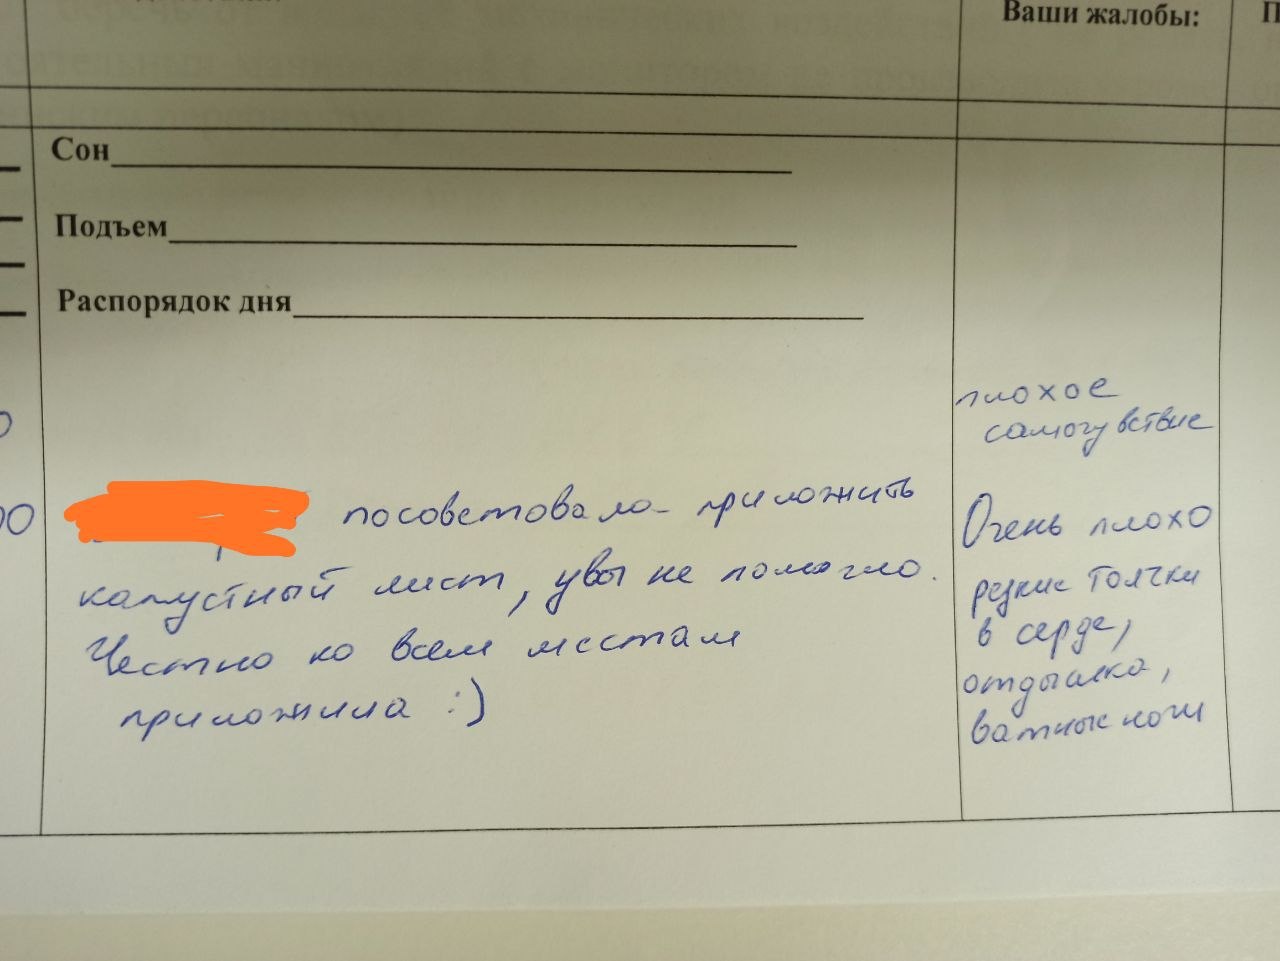 Ваши жалобы:
Сон
Подъем
Распорядок дня
плохое
самочувствие
посоветовала приложить
капустный лист, увы не помогло.
Честно ко всем местам
приложила :)
Очень плохо
резкие толчки
в сердце,
отдышка,
ватные ноги